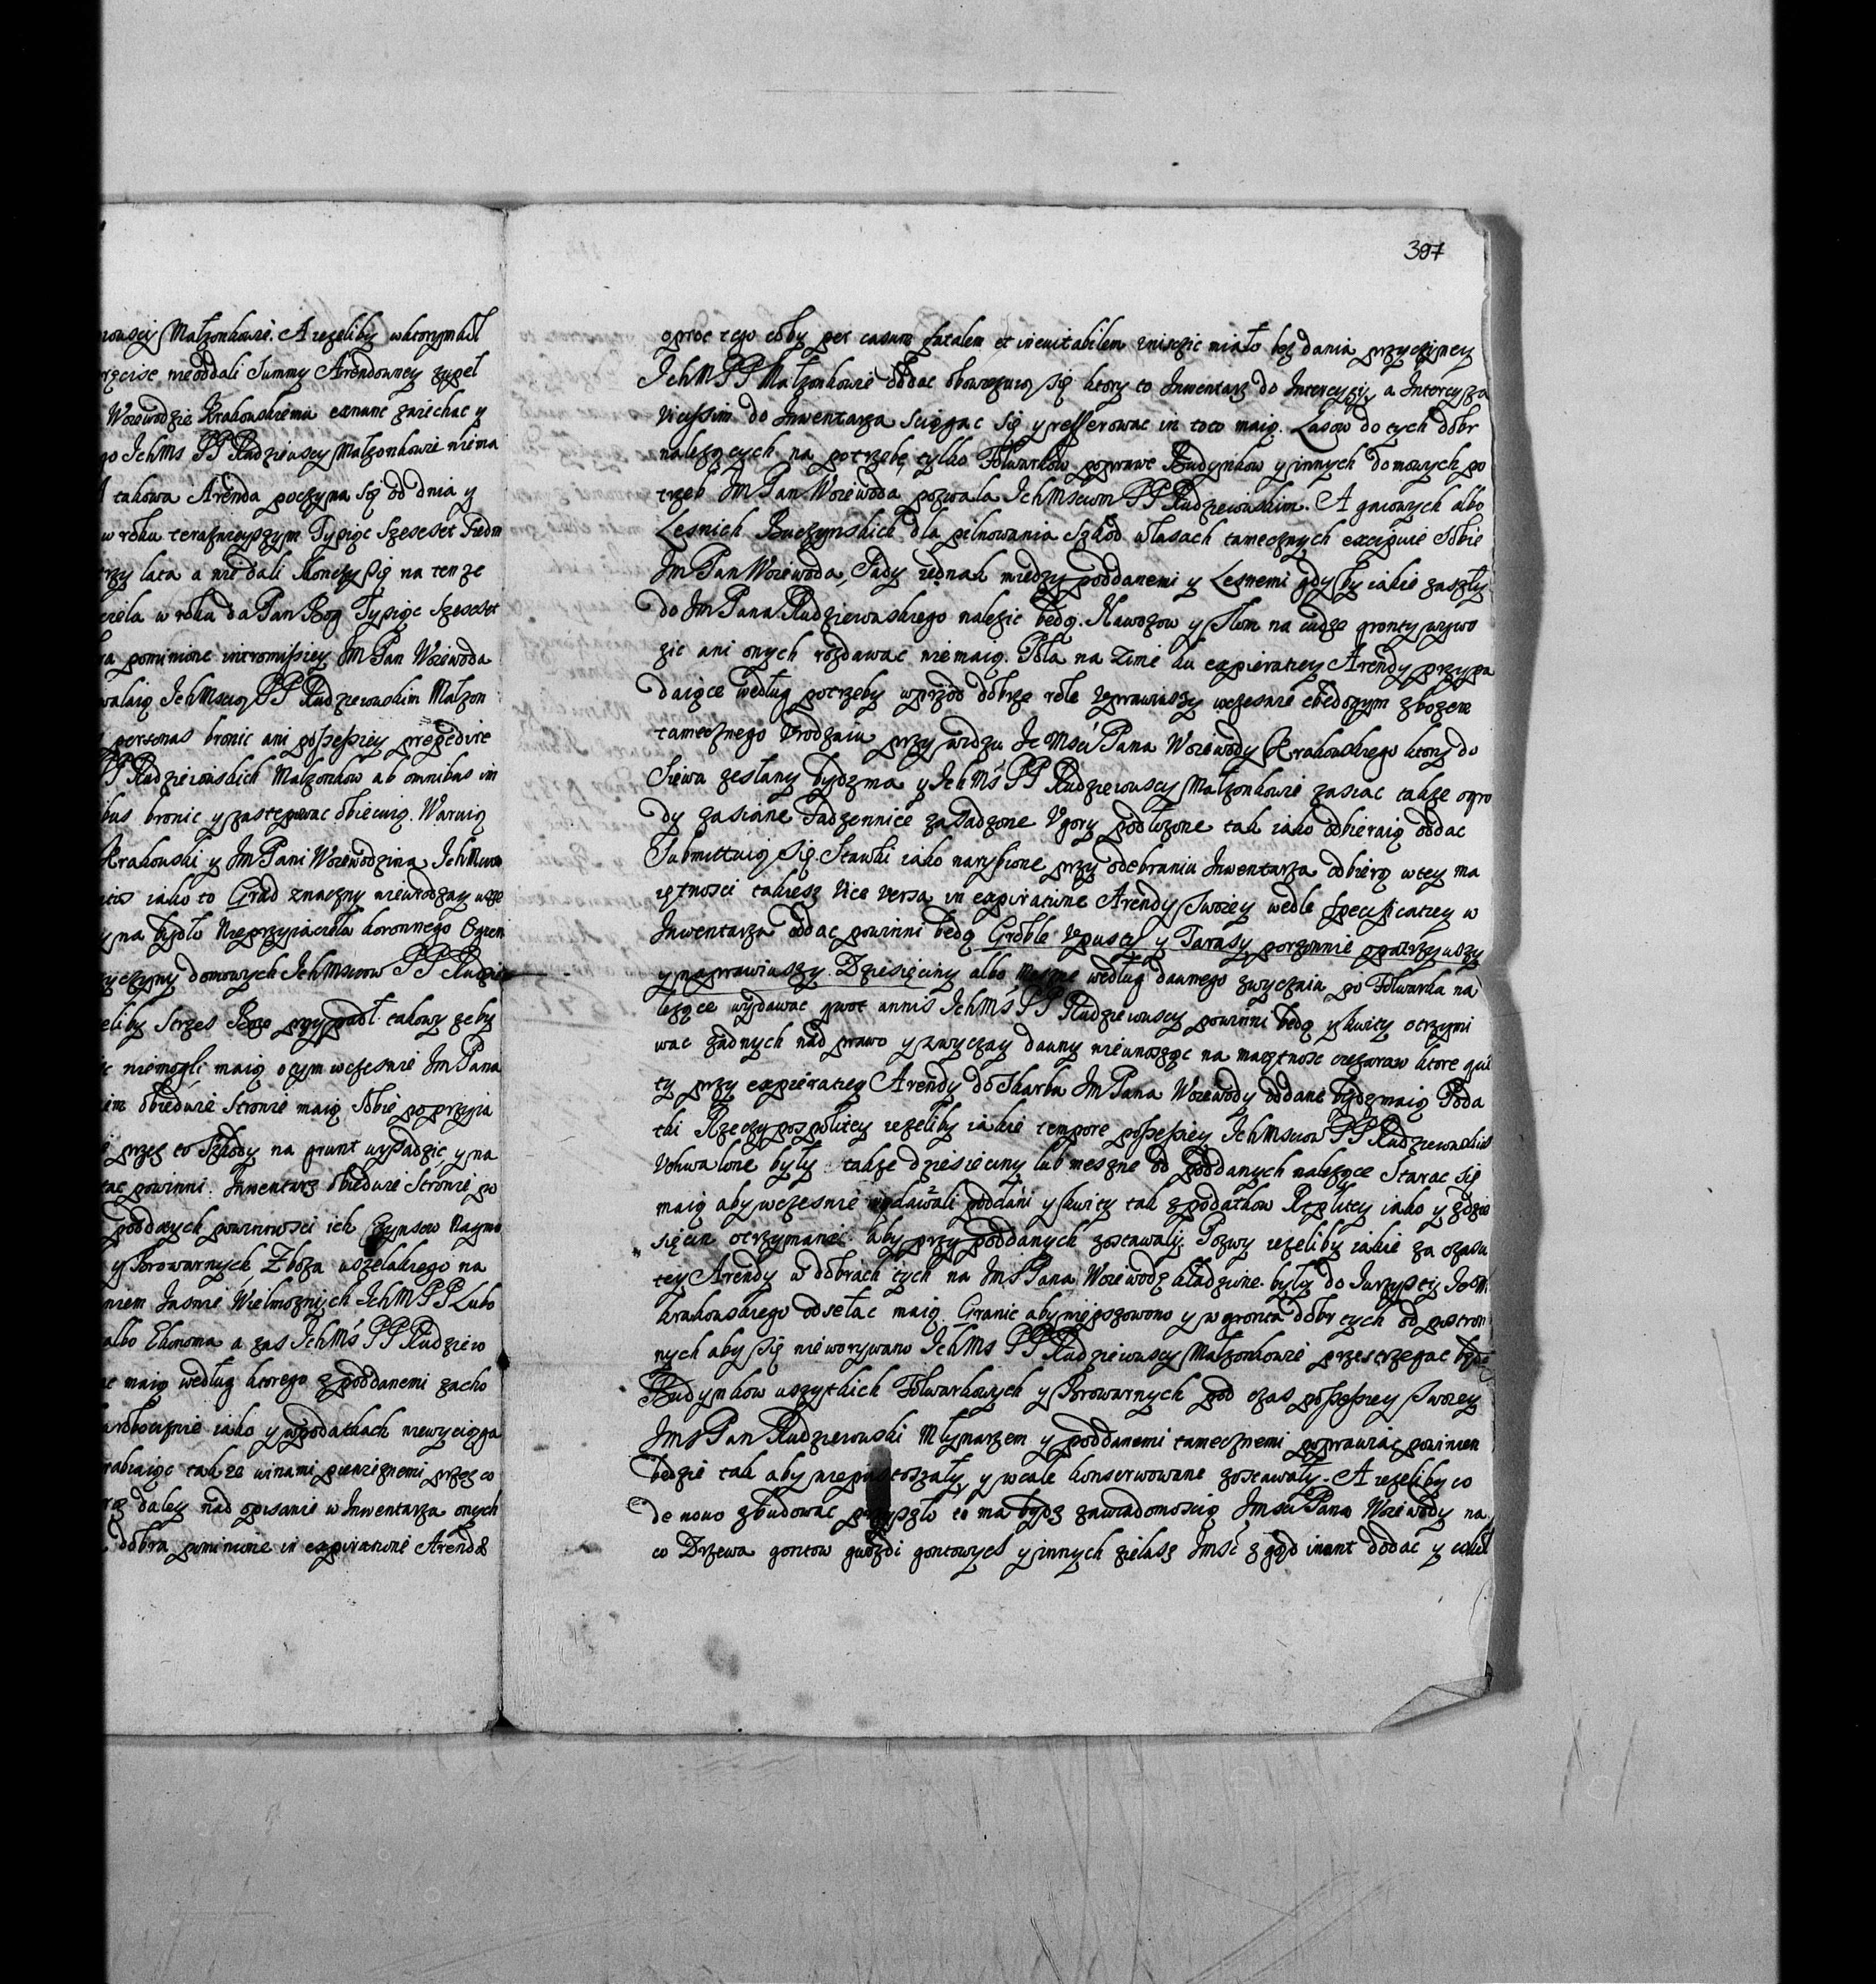 nowscy Małzonkowie. A iezeliby wktorymkol
rzcise nieoddali Summy Arendowney zupeł
Woiewodzie Krakowskiemu exnunc zaiechac y
go IchMs PP Rudzieuscy Małzonkowie niema
takowa Arenda poczyna się od dnia y
w roku teraznieyszym Tysiąc Szescset Siedm
rzy lata a nie dali konczy się na tenze
ciela w roku da Pan Bog Tysiąc Szescset
ra pominione intromissiey JM Pan Woiewoda
walaią IchMsciom PP Rudziewskim Małzon
personas bronic ani possessiey przedire
PP Rudziewskich Małzonkow ab omnibus in
bus bronic y zastępowac obiecuią. Waruią
Krakowski y JmPani Woiewodzina IchMciom
iako to Grad znaczny nieurodzay usze
y na bydło Nieprzyiaciela koronnego Ogien
zyczyny domowych IchMsciow PP Rudzie
eliby Strzes Boze przypadł takowy zeby
niemogli maią otym wczesnie JmPana
obiedwie Stronie maią Sobie poprzyia
przez to Szkody na grunt uysadzic y na
tac powinni. Inwentarz obiedwie Stronie po
poddanych powinnosci ich Czynszow Naymo
y Browarnych Zboza uszelakiego na
niem Jasnie Wielmoznych IchMPP Lubo
albo Ekonoma a zas IchMs PP Rudziew
maią według ktorego z poddanemi zacho
arobociznie iako y wpodatkach niewyciąga
rabiaiąc takze winami pienięznemi przez co
daley nad opisanie w Inwentarzu onych
dobra pominione in expiratione Arendę
397
oproc tego coby per casum fatalem et ineuitabilem zniszczic miało bez dania przyczyney
IchMPP Małzonkowie oddac obowięzuią się ktory to Inwentarz do Intercyzy, a Intercyza
vicissim do Inwentarza sciągac się y refferowac in toto maią. Lasow do tych dobr
nalezących na potrzebę tylko Folwarkow poprawe Budynkow y innych domowych po
trzeb JmPan Woiewoda pozwala IchMsciom PP Rudziewskim. A gaiowych albo
Lesnich Buczynskich dla pilnowania Szkod wlasach tamecznych excipuie Sobie
JmPan Woiewoda, Sądy iednak miedzy poddanemi y Lesnemi gdyby iakie zaszły
do JmPana Rudziewskiego nalezic będą. Nawozow y Słom na cudze gronty wywo
zic ani onych rozdawac niemaią. Pola na Zimie ku expieratiey Arendy przypa
daiące według potrzeby wprzod dobrze role uprawiuszy wczesnie chędogym zbozem
tamecznego Vrodzaiu przy widzu IeMsci Pana Woiewody Krakowskiego ktory do
Siewa zesłany bydzma y IchMs PP Rudziewscy Małzonkowie zasiac takze ogro
dy zasiane Sadzennice zasadzone Vgory podłozone tak iako odbieraią oddac
Submittuią Się. Stawki iako narybione przy odebraniu Inwentarza odbierą wtey ma
iętnosci takiesz Vice Versa in expiratione Arendy Swoiey wedle specificatiey w
Inwentarzu oddac powinni będą Groble upusty y Tarasy porządnie opatrzyuszy
y naprawiuszy. Dziesięciny albo Meszne według daunego zwyczaiu po Folwarku na
lezące wydawac quot annis IchMs PP Rudziewuscy powinni będą y kwity otrzymi
wac zadnych nad prawo y zwyczay dauny nieunosząc na maiętnosc ciezarow ktore qui
ty przy expieratiey Arendy do Skarbu JmPana Woiewody oddane bydzmaią Poda
tki Rzeczypospolitey iezeliby iakie tempore possessiey IchMsciow PP Rudziewskich
Vchwalone były takze dziesieciny lub meszne od poddanych nalezące Starac się
maią aby wczesnie wydawali poddani y kwity tak z podatkow Rzplitey iako y zdzie
sięcin otrzymanie aby przy poddanych zostawały. Pozwy iezeliby iakie za czasu
tey Arendy w dobrach tych na JmS Pana Woiewodę kładzione były do Jurystey IeM
krakowskiego odsełac maią. Granic aby niepsowono y w gronta dobr tych od postron
nych aby się niewrywano IchMs PP Rudziewuscy Małzonkowie przestrzegac będą
Budynkow uszytkich Folwarkowych y Browarnych pod czas possessiey Swoiey
JmS Pan Rudziewuski Młynarzem y poddanemi tamecznemi poprawiac powinien
będzie tak aby niepustoszały y wcale konserwowane zostawały. A iezeliby co
de nouo zbudowac przyszło to ma bydz zawiadomoscią Jmsci Pana Woiewody na
co Drzewa gontow gwozdzi gontowych y innych zielasz Jmsc z gąd inant dodac y